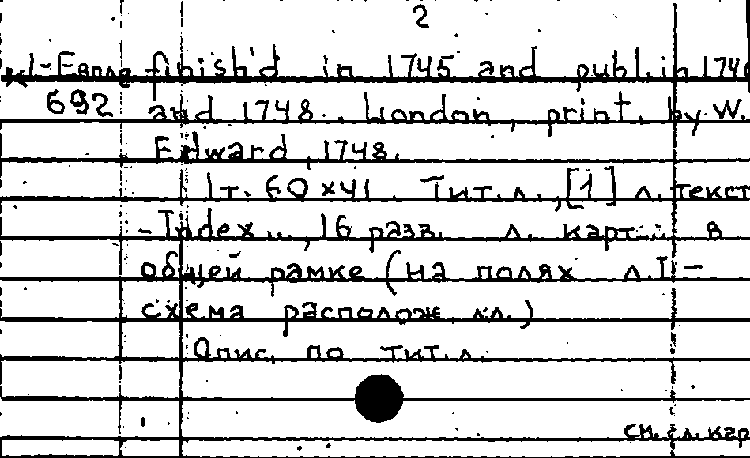 2
К1-Европа finish'd in 1745 and publ. in 1746
692 and 1748. London, print. by W.
Edward, 1748.
1т. 60x41. Тит.л., [1] л. текст
-Index..., 16 разв. л. карт... в
общей рамке (на полях л.I-
схема располож. кл.)
Опис. по тит.л.
см. сл. кар